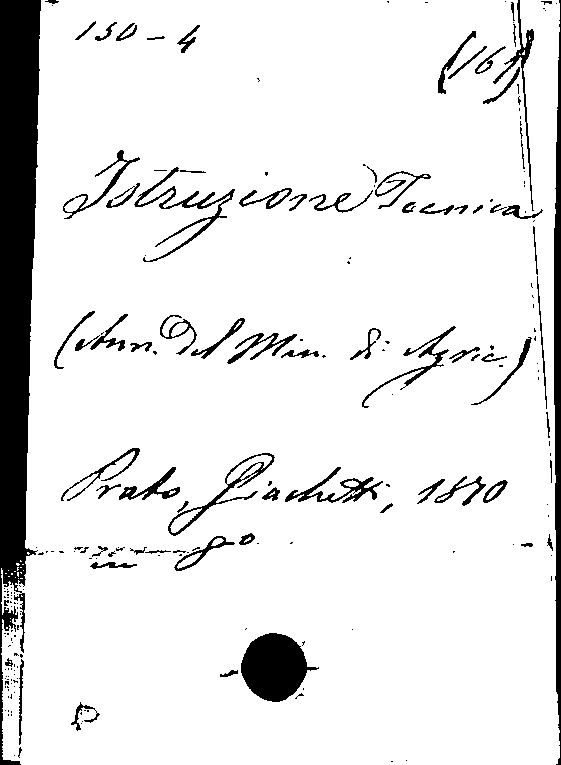 150-4
(161)
Istruzione Tecnica
(Ann. del Min. di Agric.)
Prato, Giachetti, 1870
in 8°
P